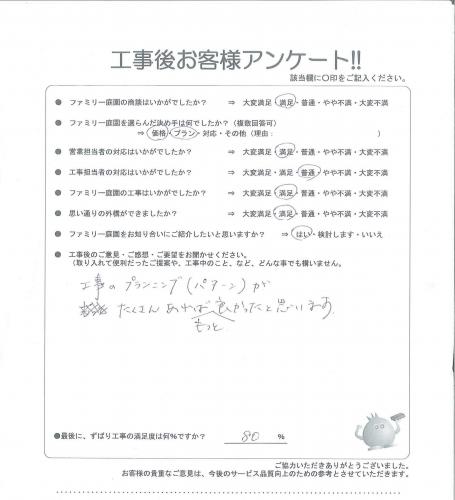 工事後お客様アンケート!!
該当欄に○印をご記入ください。
● ファミリー庭園の商談はいかがでしたか? ⇒ 大変満足・満足・普通・やや不満・大変不満
● ファミリー庭園を選らんだ決め手は何でしたか?(複数回答可)
⇒ 価格・プラン・対応・その他(理由: )
● 営業担当者の対応はいかがでしたか? ⇒ 大変満足・満足・普通・やや不満・大変不満
● 工事担当者の対応はいかがでしたか? ⇒ 大変満足・満足・普通・やや不満・大変不満
● ファミリー庭園の工事はいかがでしたか? ⇒ 大変満足・満足・普通・やや不満・大変不満
● 思い通りの外構ができましたか? ⇒ 大変満足・満足・普通・やや不満・大変不満
● ファミリー庭園をお知り合いにご紹介したいと思いますか? ⇒ はい・検討します・いいえ
● 工事後のご意見・ご感想・ご要望をお聞かせください。
(取り入れて便利だったご提案や、工事中のこと、など、どんな事でも構いません。
工事のプランニング(パターン)が
たくさんあれば良かったと思います
もっと
●最後に、ずばり工事の満足度は何%ですか? 80 %
ご協力いただきありがとうございました。
お客様の貴重なご意見は、今後のサービス品質向上のための参考とさせていただきます。